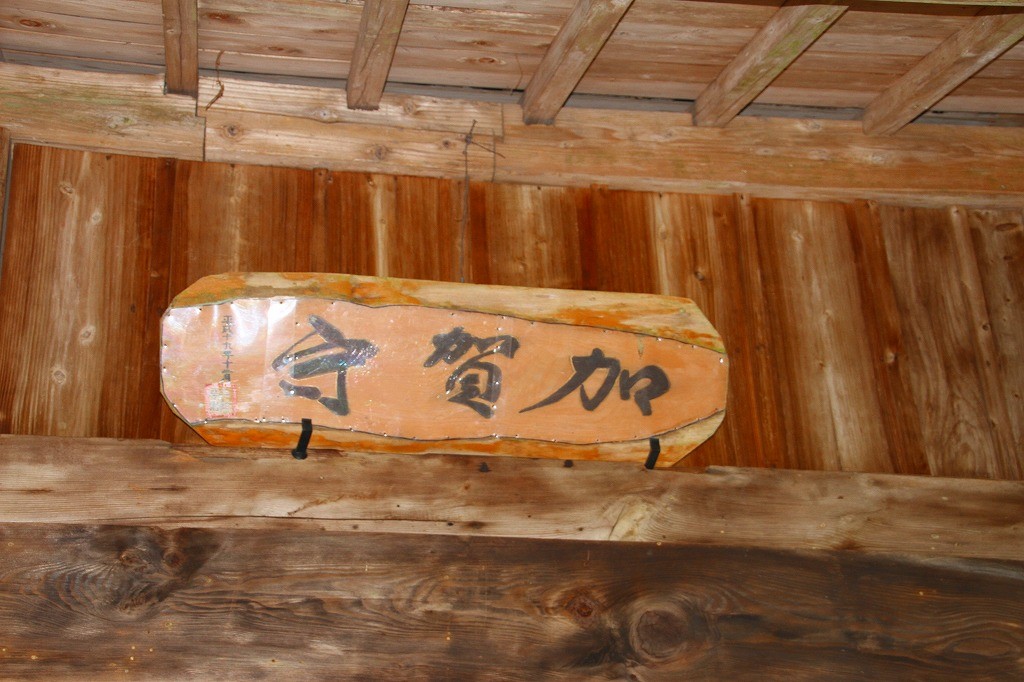 加賀守
平成十九年十一月